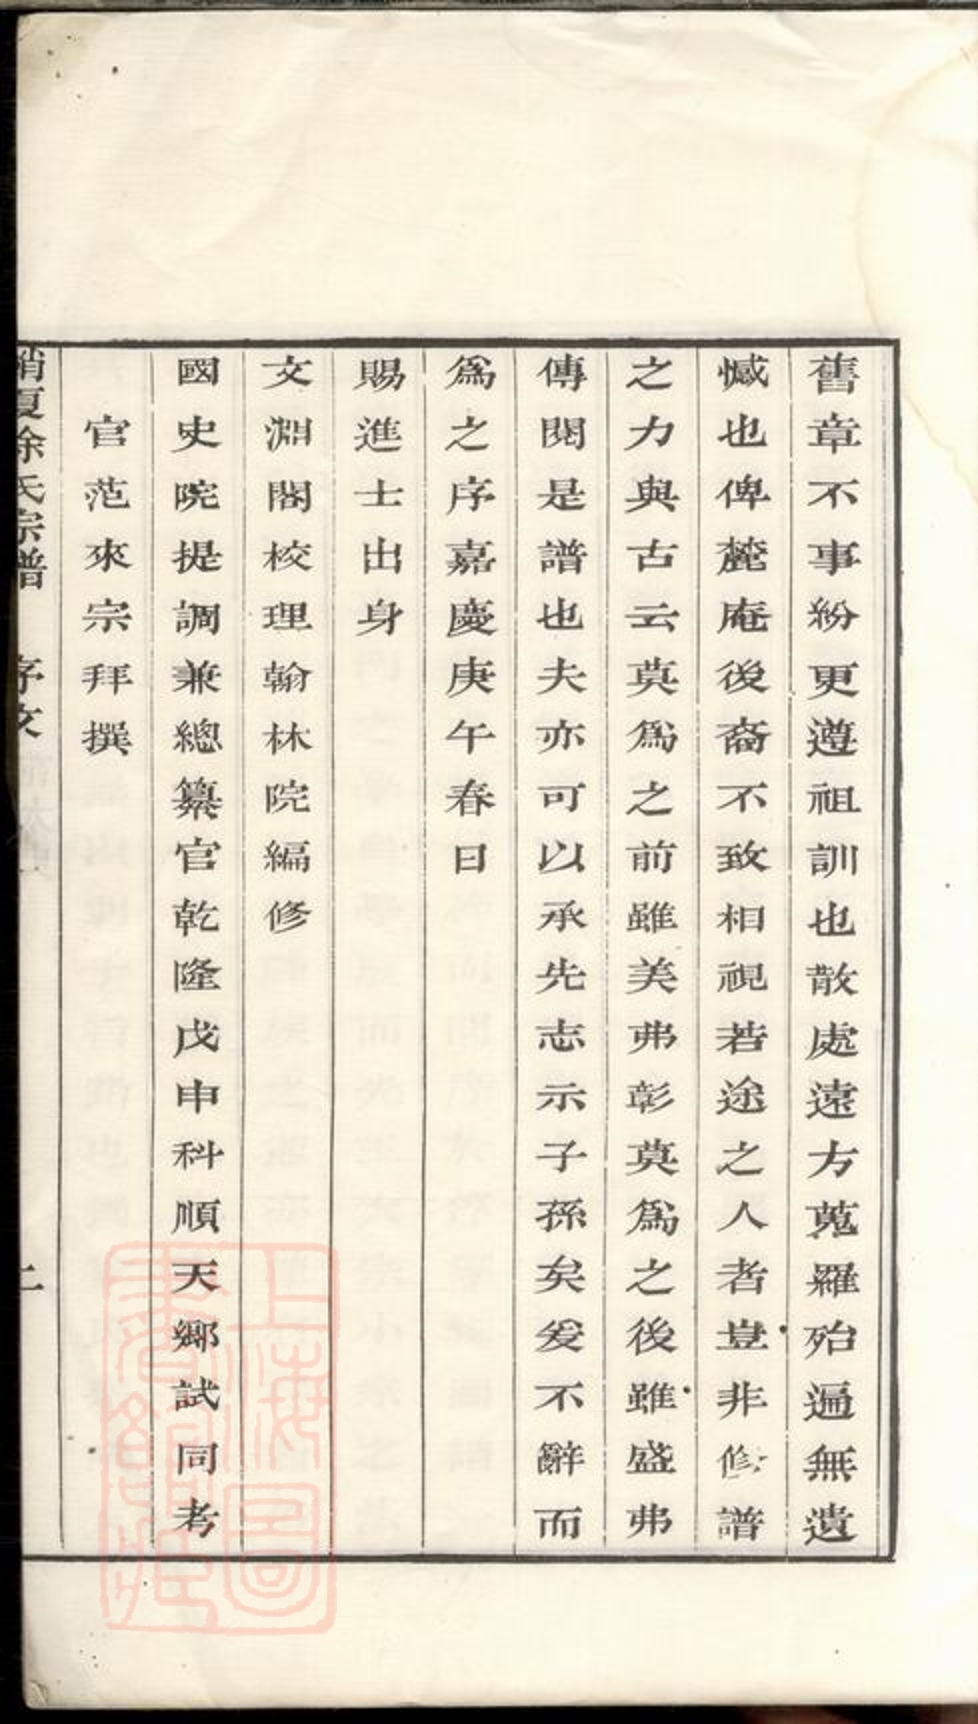 舊章不事紛更遵祖訓也散處遠方蒐羅殆遍無遺
憾也俾麓庵後裔不致相視若途之人者豈非修譜
之力與古云莫爲之前雖美弗彰莫爲之後雖盛弗
傳閱是譜也夫亦可以承先志示子孫矣爰不辭而
爲之序嘉慶庚午春日
賜進士出身
文淵閣校理翰林院編修
國史院提調兼總纂官乾隆戊申科順天鄉試同考
官范來宗拜撰
夏徐氏宗譜 序文 二
上海圖書館藏